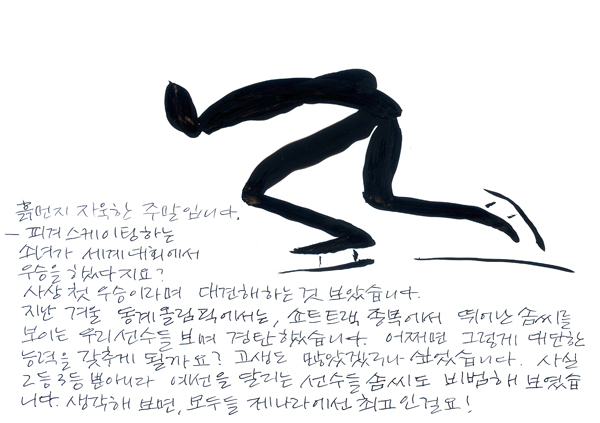 흙먼지 자욱한 주말입니다.
– 피겨스케이팅하는
소녀가 세계대회에서
우승을 했다지요?
사상 첫 우승이라며 대견해하는 것 보았습니다.
지난 겨울 동계올림픽에서는, 쇼트트랙 종목에서 뛰어난 솜씨를
보이는 우리선수들 보며 경탄했습니다. 어쩌면 그렇게 대단한
능력을 갖추게 될까요? 고생도 많았겠거니 싶었습니다. 사실
2등 3등 뿐아니라 예선을 달리는 선수들 솜씨도 비범해 보였습
니다. 생각해 보면, 모두들 제나라에선 최고인걸요!